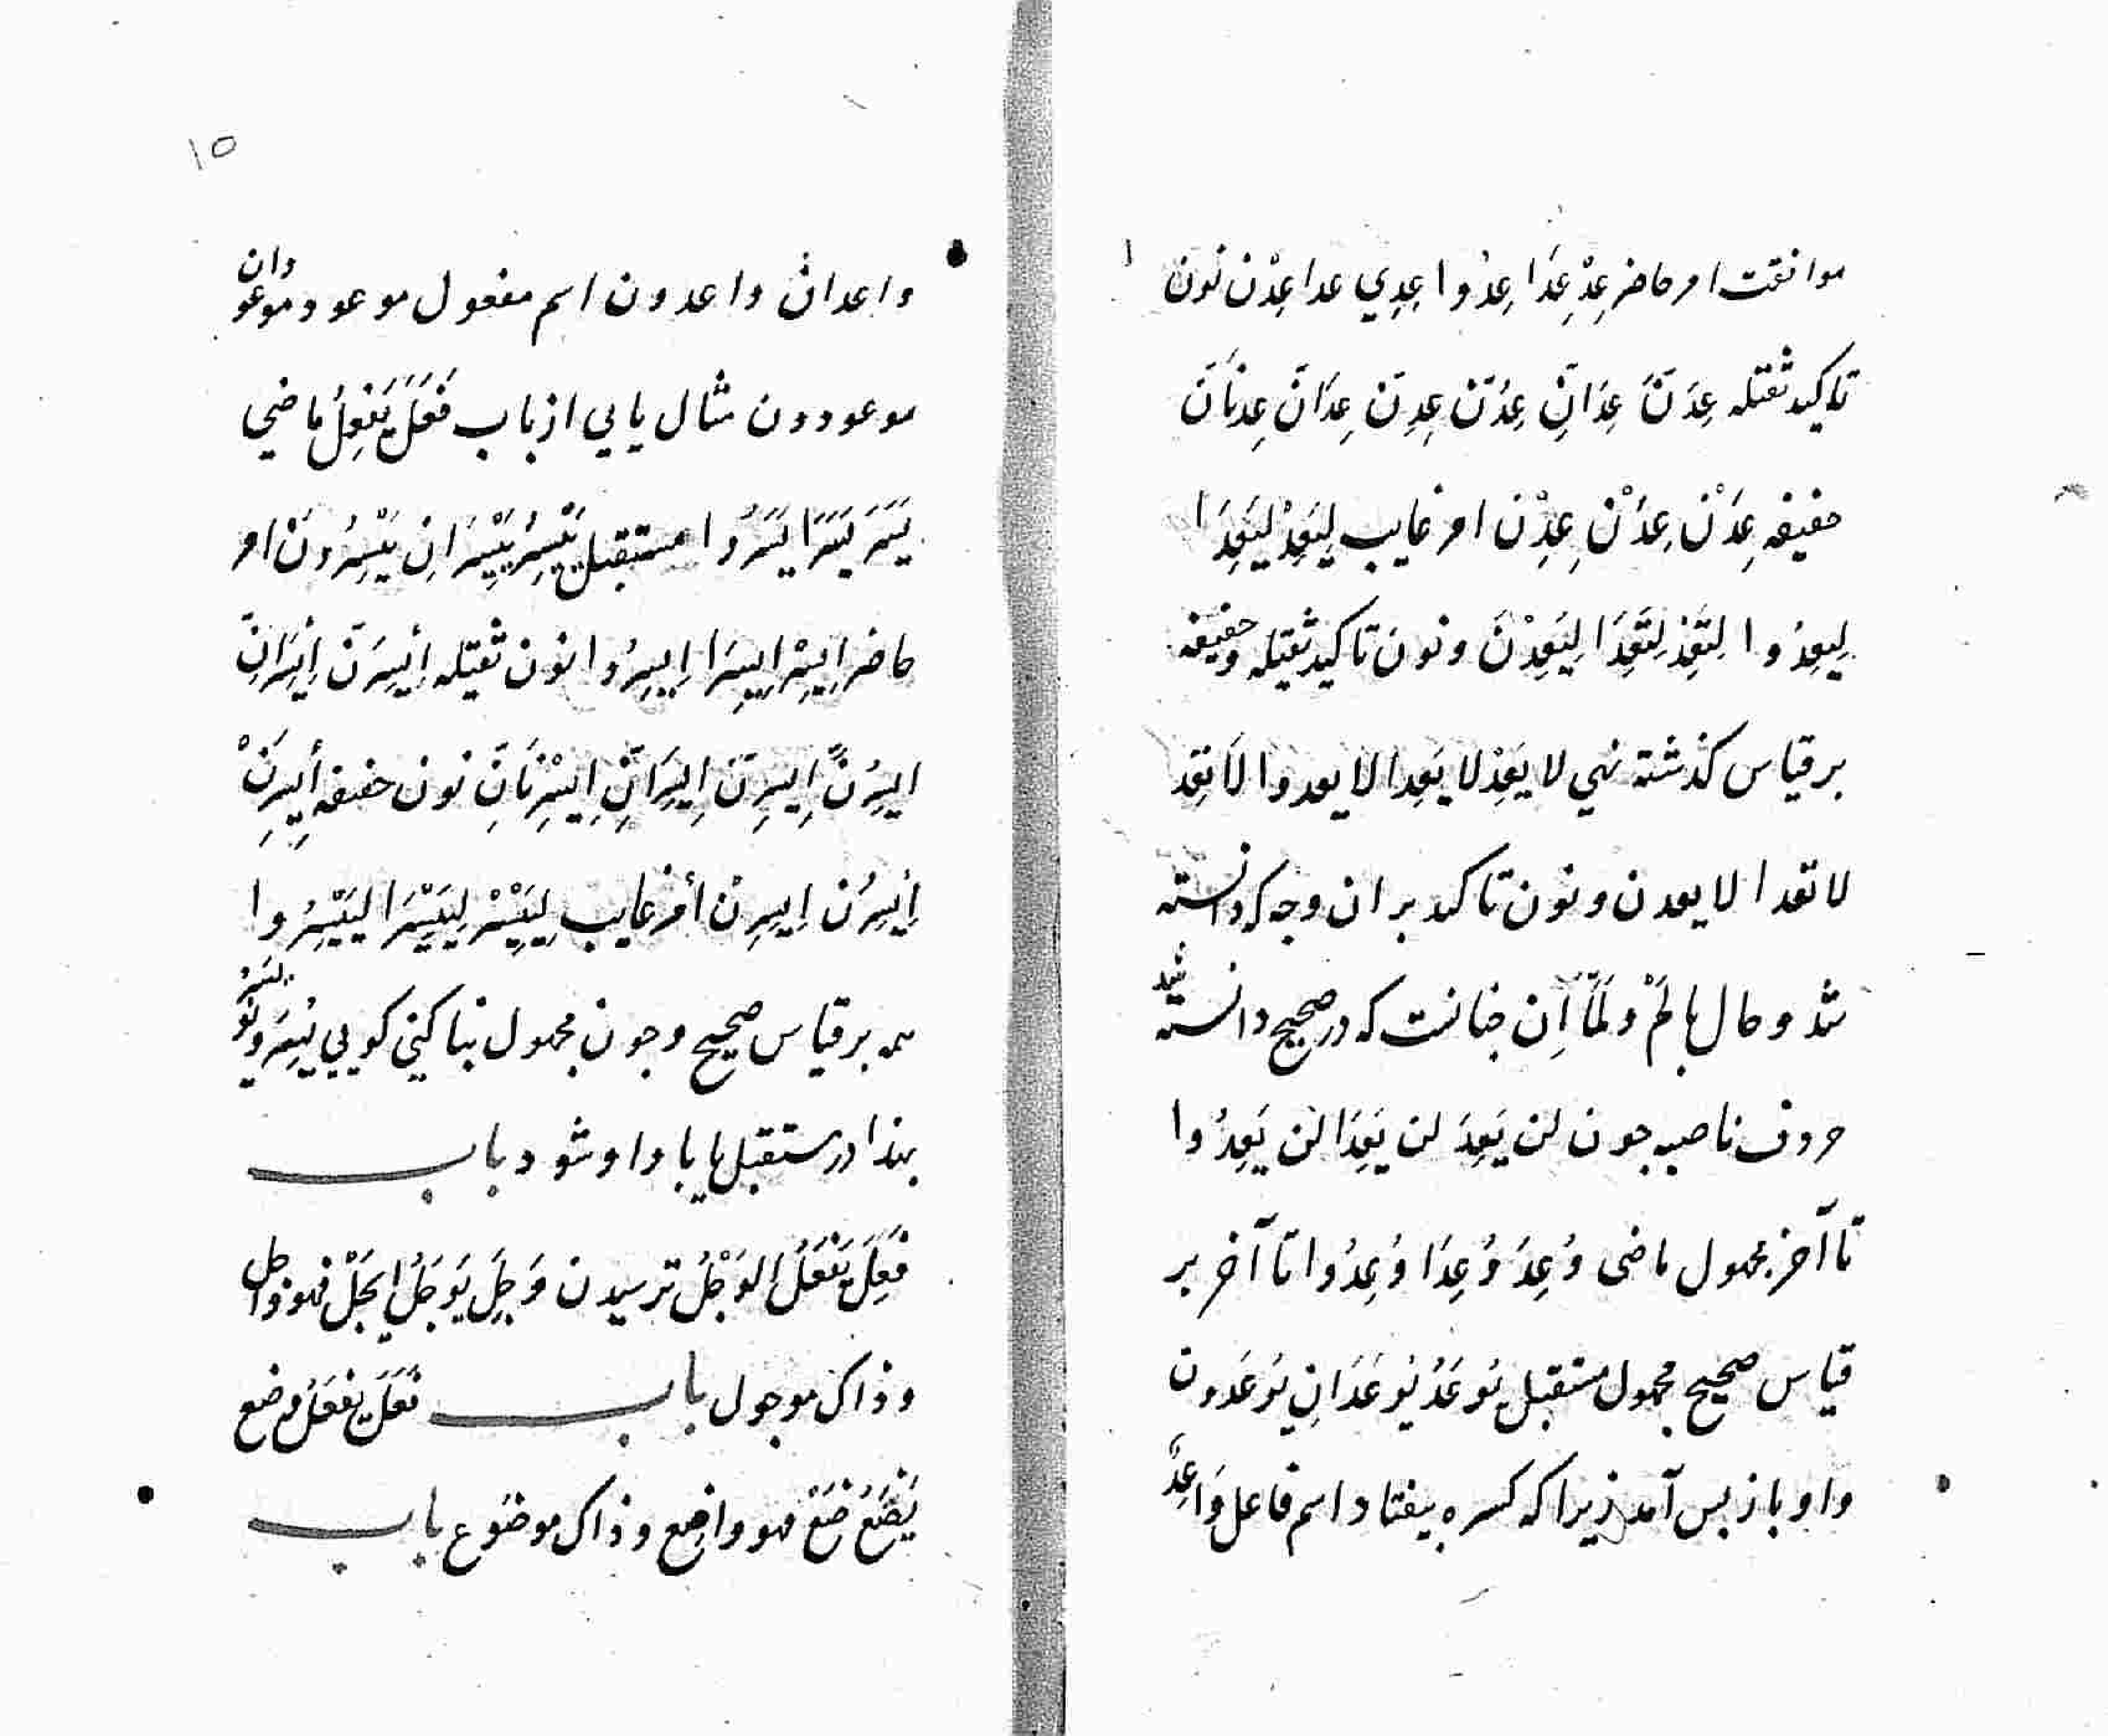 موافقت امر حاضر عِدْ عِدَا عِدُوا عِدِي عدا عِدْن نون
تاکید ثقیله عِدَنَّ عِدَانِّ عِدُنَّ عِدِنَّ عِدَانِّ عِدنَانَّ
خفیفه عِدَنْ عِدُنْ عِدِنْ امر غایب لِیَعِدْ لِیَعِدَا
لِیعِدُوا لِتَعِدْ لِتَعِدَا لِیَعِدْنَ ونون تاکید ثقیله وخفیفه
بر قیاس کذشته نهی لا یَعِدْ لا یَعِدا لا یعدوا لا تَعِد
لا تعدا لا یعدن ونون تاکید بران وجه که دانسته
شد وحال با لَمْ ولَمَّا اِن جنانست که در صحیح دانسته شد
حروف ناصبه جون لن یَعِدَ لن یَعِدَا لن یَعِدُوا
تا آخر مجهول ماضی وُعِدَ وُعِدَا وُعِدُوا تا آخر بر
قیاس صحیح مجهول مستقبل یُوعَدُ یُوعَدَانِ یُوعَدون
واو باز بس آمد زیرا که کسره بیفتاد اسم فاعل وَاعِدٌ
١٥
واعدان واعدون اسم مفعول موعود وموعودان
موعودون مثال یایی از باب فَعَلَ یَفعِلُ ماضی
یَسَرَ یَسَرَا یَسَرُوا مستقبل یَیْسِرُ یَیْسِرَانِ یَیْسِرُونَ امر
حاضر اِیسِرْ اِیسِرَا اِیسِرُوا نون ثقیله اِیسِرَنَّ اِیسِرَانِّ
ایسِرُنَّ اِیسِرِنَّ اِیسِرَانِّ اِیسِرْنَانِّ نون خفیفه اِیسِرَنْ
اِیسِرُن اِیسِرِنْ امر غایب لِیَیْسِرْ لِیَیْسِرَا لِیَیْسِرُوا
همه بر قیاس صحیح وجون مجهول بنا کنی کویی یُسِرَ ویُوسَرُ
بهذا در مستقبل یا با واو شود باب
فَعِلَ یَفْعَلُ الوَجْلُ ترسیدن وَجِلَ یَوجَلُ ایجَلْ فهو واجل
وذاک موجول باب فَعَلَ یَفعَلُ وضع
یَضَعُ ضَعْ فهو واضع وذاک موضوع باب